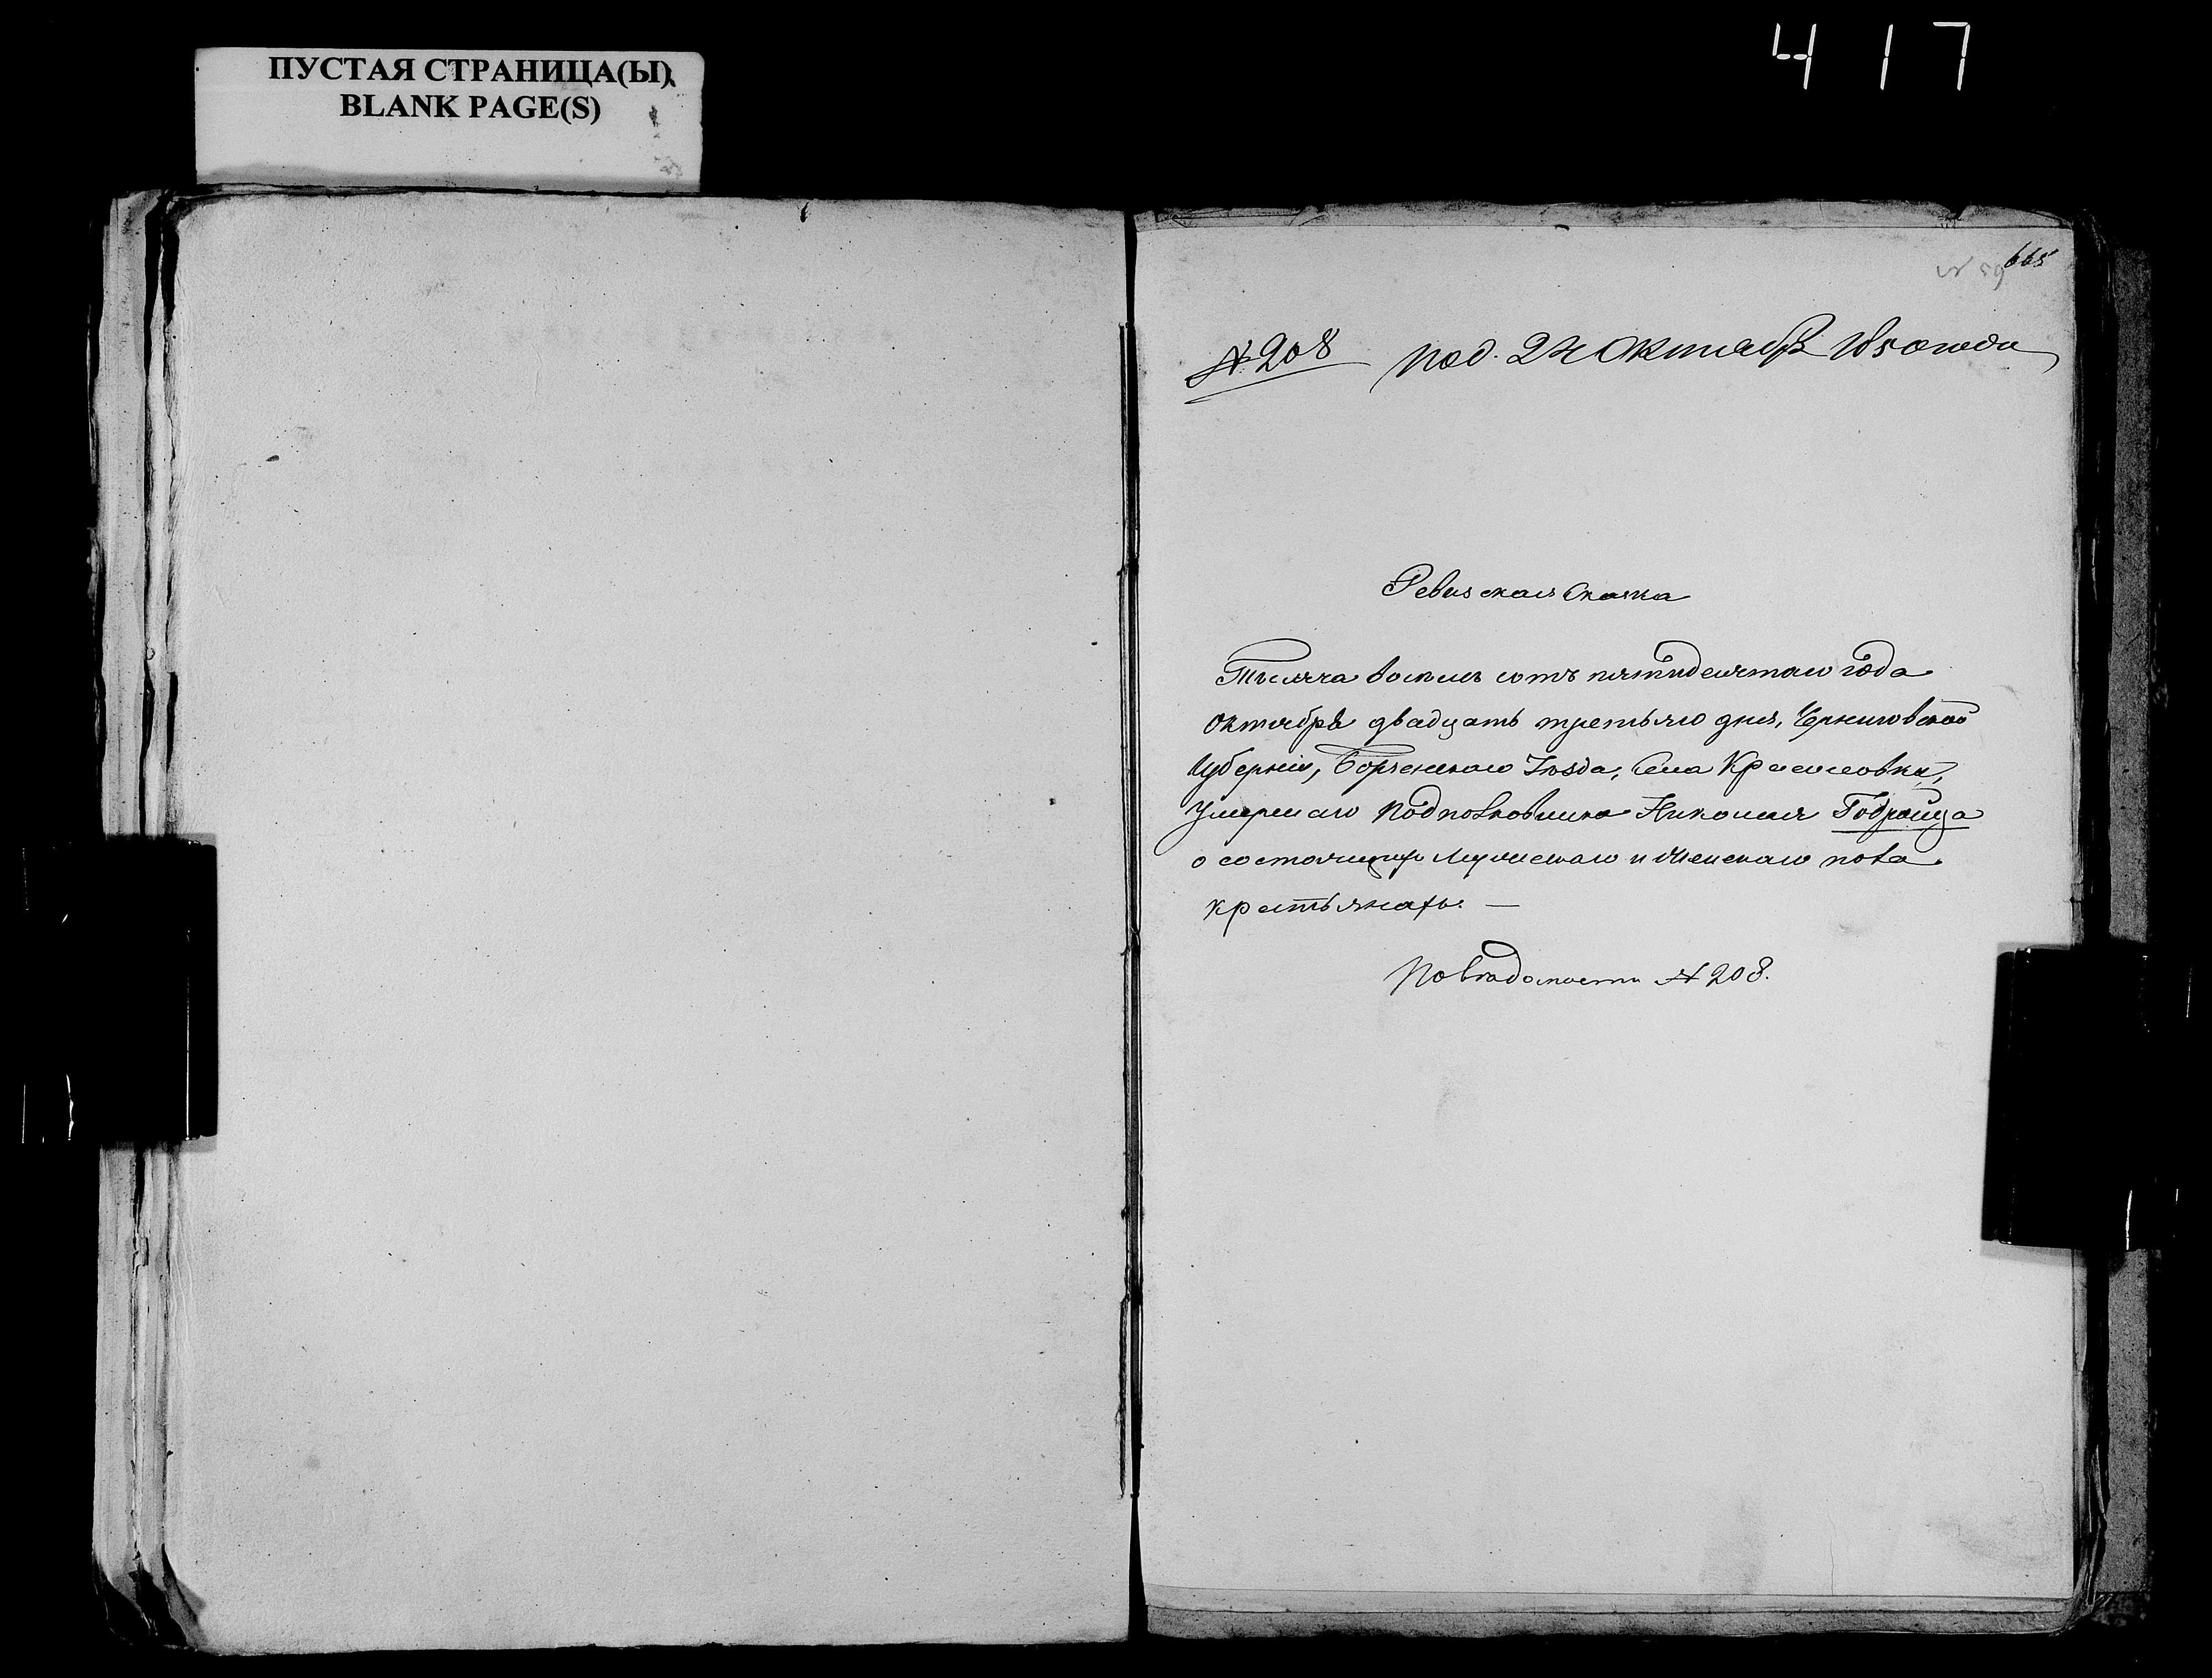 ПУСТАЯ СТРАНИЦА(Ы)
BLANK PAGE(S)
417
665
№ 59
№ 208 Под. 24 Октября 1850 года
Ревизская Сказка
Тысяча восемь сотъ пятидесятаго года
Октября двадцать третьяго дня, Черниговской
Губерніи, Борзенскаго Уѣзда, Села Красиловки,
Умершаго Подполковника Николая
о состоящихъ Мужескаго и Женскаго пола
крестьянахъ. —
По вѣдомости № 208.